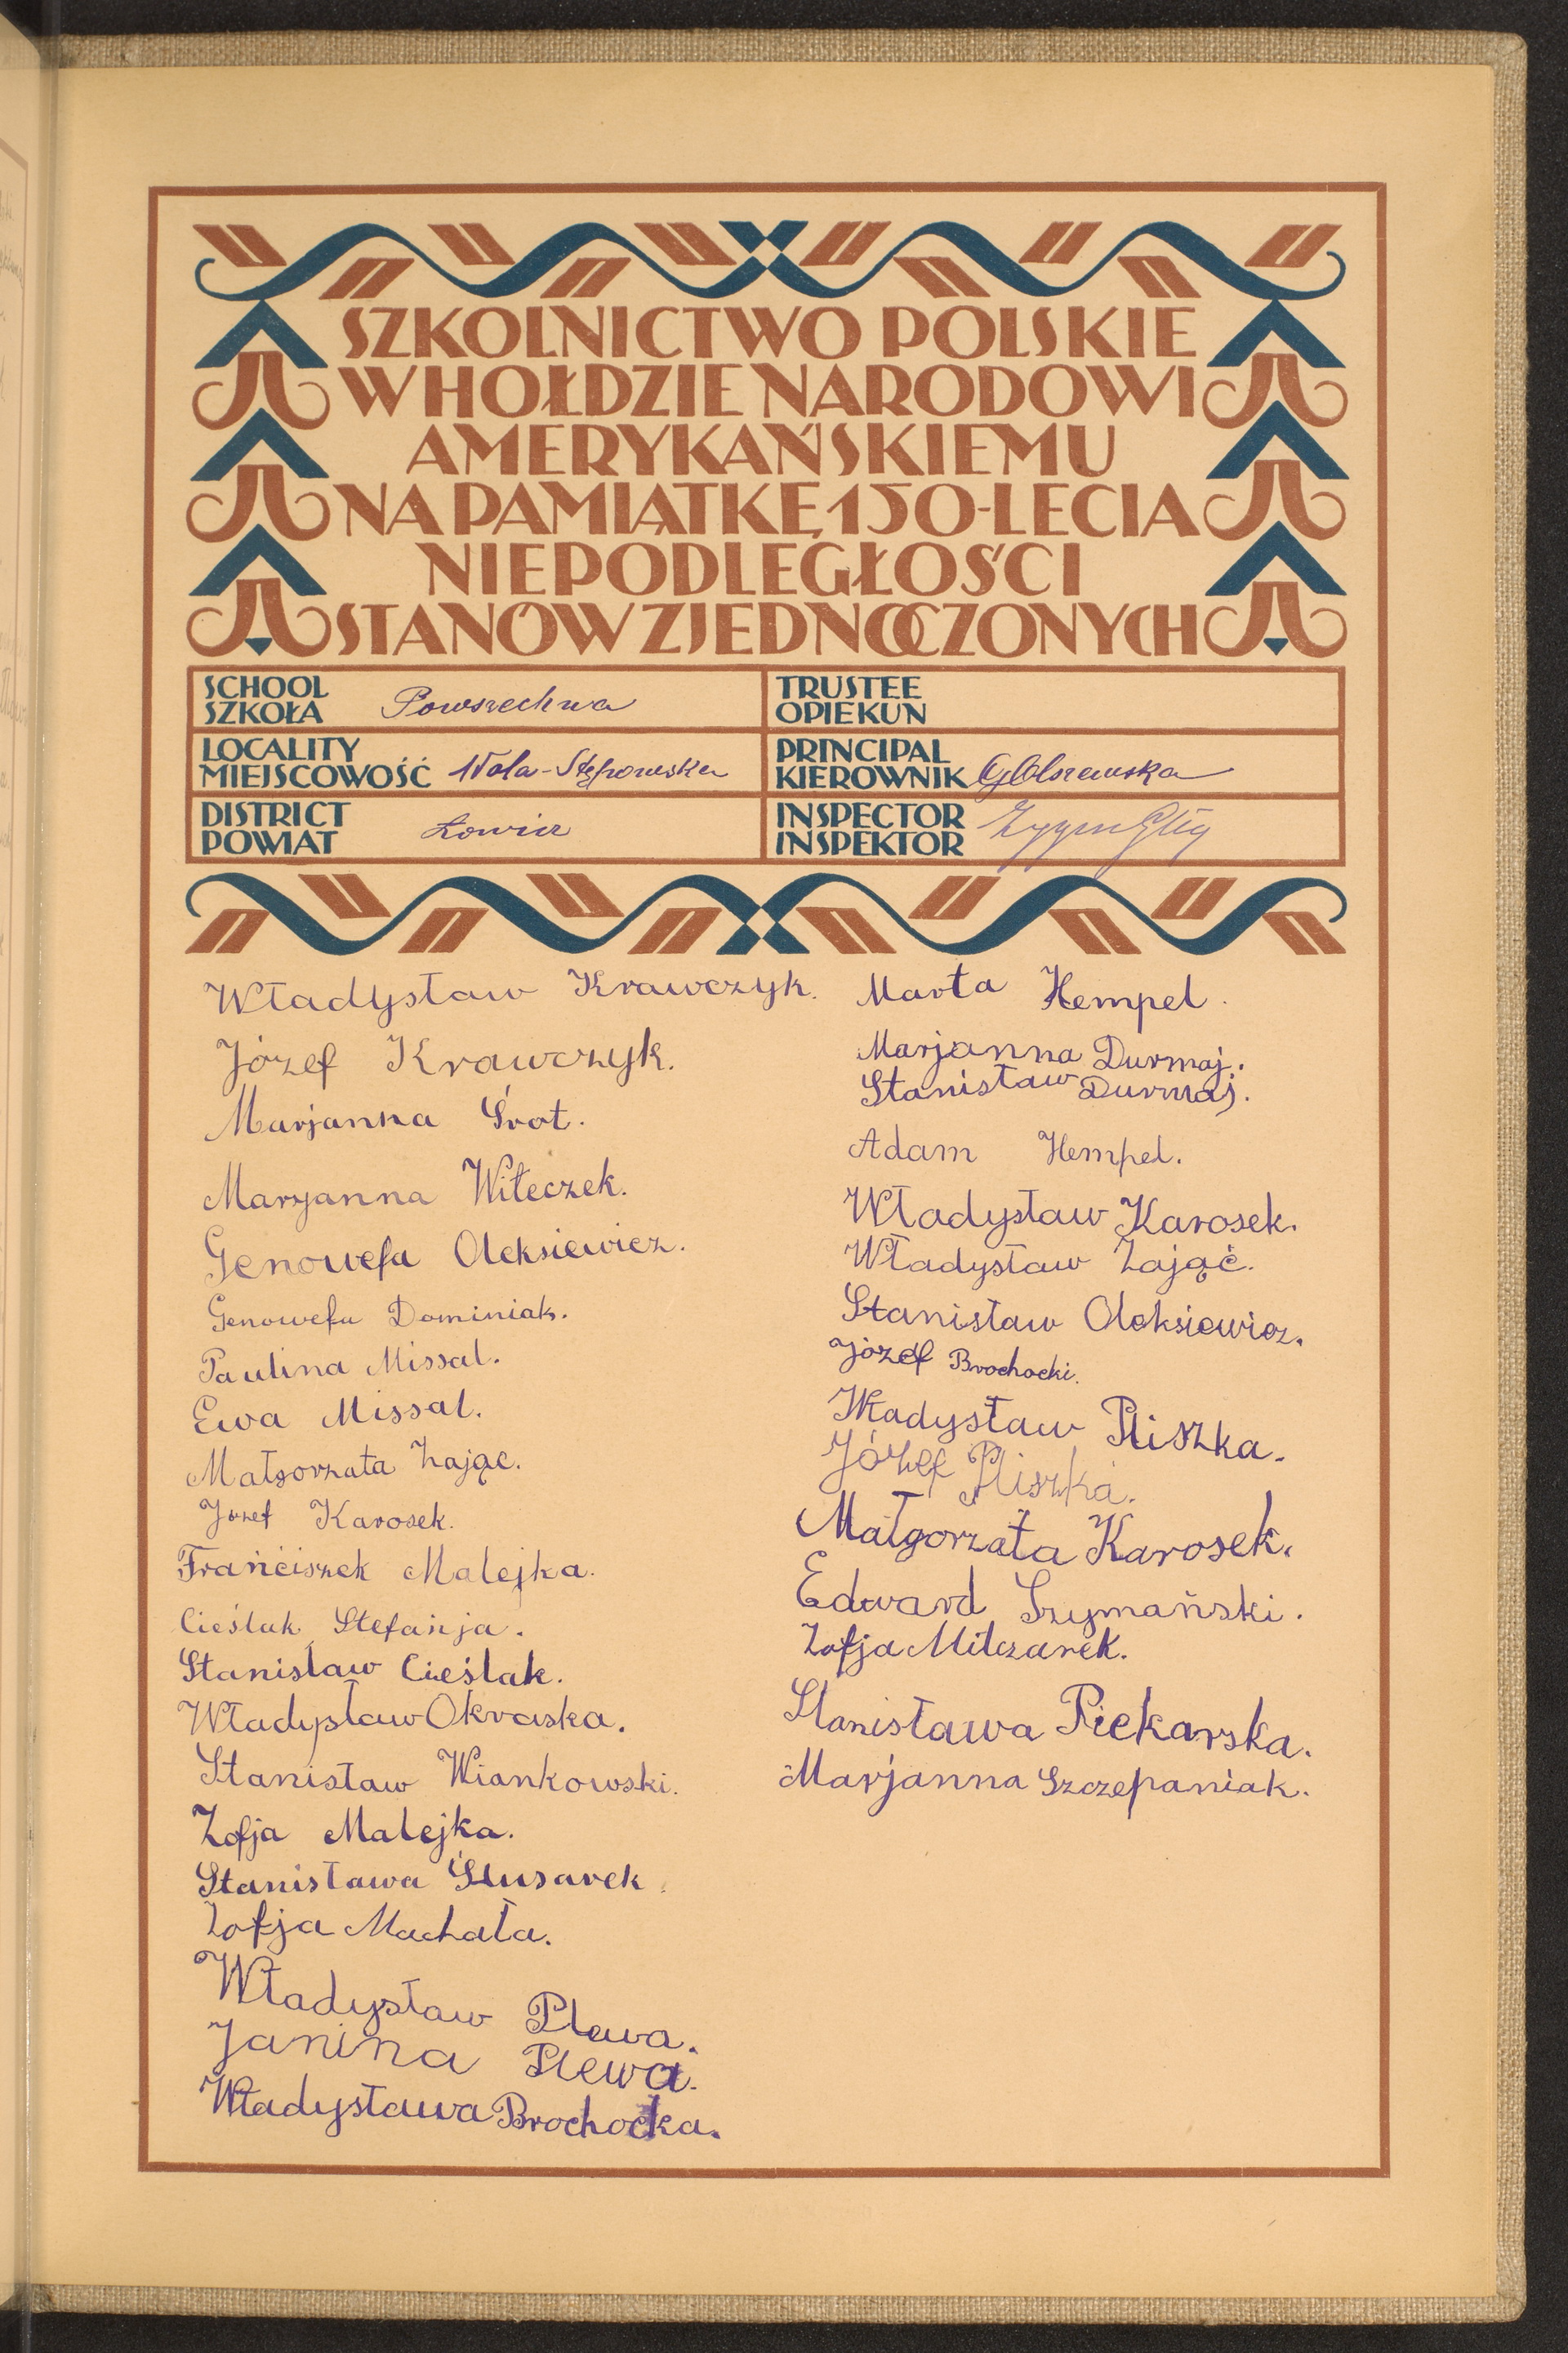 SZKOLNICTWO POLSKIE
W HOŁDZIE NARODOWI
AMERYKAŃSKIEMU
NA PAMIĄTKĘ 150-LECIA
NIEPODLEGŁOŚCI
STANÓW ZJEDNOCZONYCH
SCHOOL
SZKOŁA Powszechna
TRUSTEE
OPIEKUN
LOCALITY
MIEJSCOWOŚĆ Wola-Stępowska
PRINCIPAL
KIEROWNIK Olszewska
DISTRICT
POWIAT Łowicz
INSPECTOR
INSPEKTOR
Władysław Krawczyk.
Józef Krawczyk.
Marjanna Śrot.
Maryanna Witeczek.
Genowefa Oleksiewicz.
Genowefa Dominiak.
Paulina Missal.
Ewa Missal.
Małgorzata Zając.
Józef Karosek.
Frańciszek Malejka.
Cieślak Stefańja.
Stanisław Cieślak.
Władysław Okraska.
Stanisław Wiankowski.
Zofja Malejka.
Stanisława Ślusarek.
Zofja Machała.
Władysław Plewa.
Janina Plewa.
Władysława Brochocka.
Marta Hempel.
Marjanna Durmaj.
Stanisław Durmaj.
Adam Hempel.
Władysław Karosek.
Władysław Zająć.
Stanisław Oleksiewicz.
Józef Brochocki.
Władysław Pliszka.
Józef Pliszka.
Małgorzata Karosek.
Edward Szymański.
Zofja Milczarek.
Stanisława Piekarska.
Marjanna Szczepaniak.